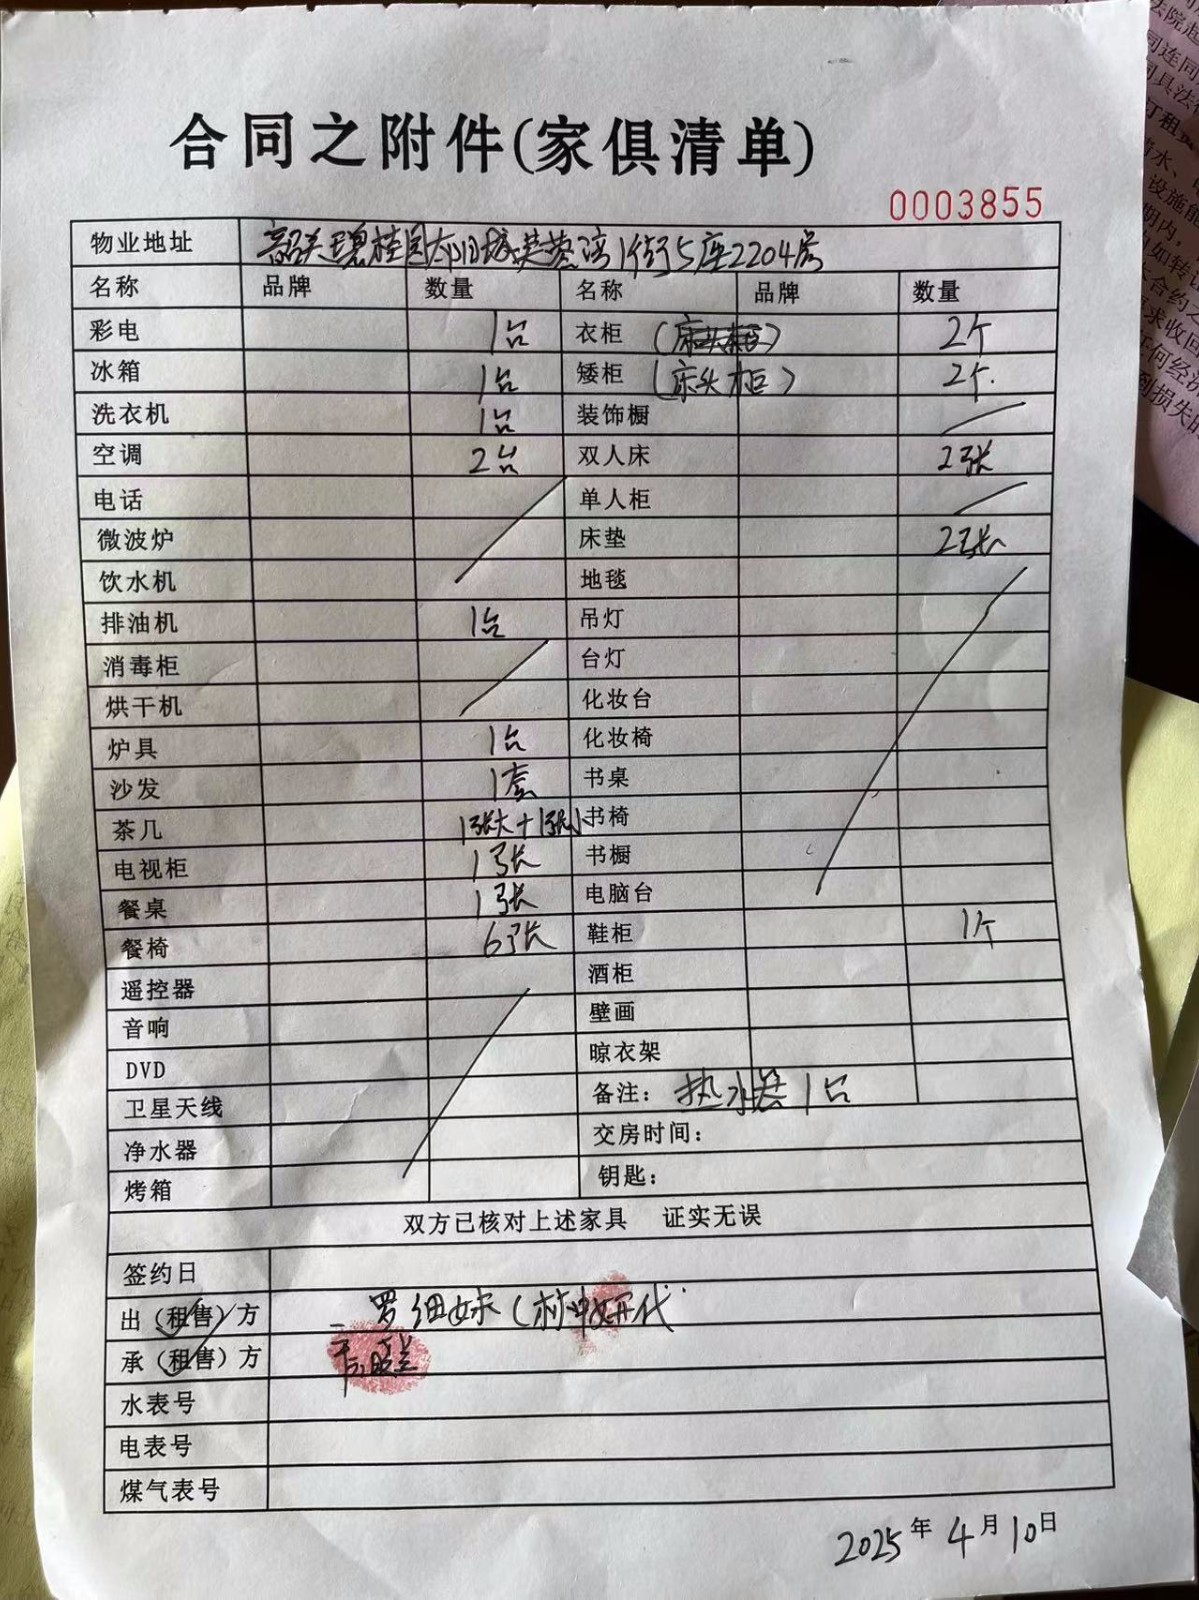 合同之附件(家俱清单)
0003855
物业地址 韶关碧桂园太阳城芙蓉湾1街5座2204房
名称 品牌 数量 名称 品牌 数量
彩电 1台 衣柜 2个
冰箱 1台 矮柜 (床头柜) 2个.
洗衣机 1台 装饰橱
空调 2台 双人床 2张
电话 单人柜
微波炉 床垫 2张
饮水机 地毯
排油机 1台 吊灯
消毒柜 台灯
烘干机 化妆台
炉具 1台 化妆椅
沙发 1套 书桌
茶几 1张大+1张小 书椅
电视柜 1张 书橱
餐桌 1张 电脑台
餐椅 6张 鞋柜 1个
遥控器 酒柜
音响 壁画
DVD 晾衣架
卫星天线 备注: 热水器1台
净水器 交房时间:
烤箱 钥匙:
双方已核对上述家具 证实无误
签约日
出(租售)方 罗细妹(代
承(租售)方
水表号
电表号
煤气表号
2025年4月10日